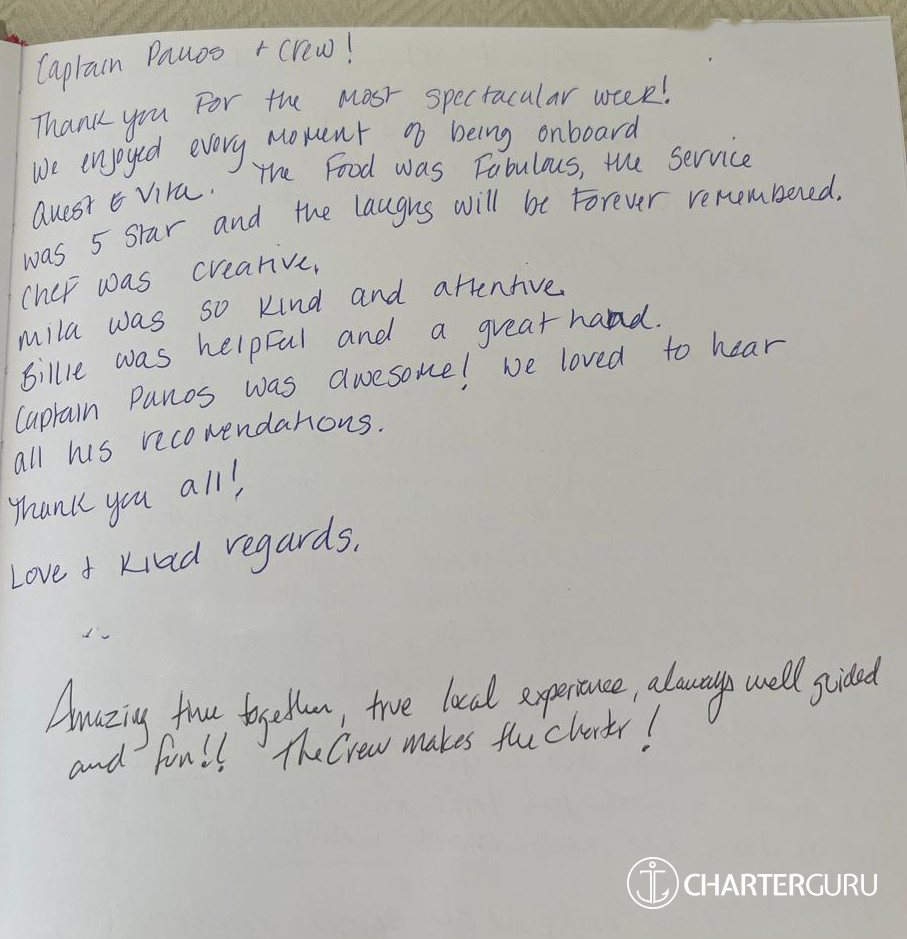 Captain Panos + Crew!
Thank you For the most spectacular week!
We enjoyed every moment of being onboard
Quest & Vita. The Food was Fabulous, the service
was 5 Star and the laughs will be Forever remembered.
Chef was creative.
Mila was so kind and attentive.
Billie was helpful and a great hand.
Captain Panos was awesome! We loved to hear
all his recomendations.
Thank you all!
Love + Kind regards.
Amazing time together, true local experience, always well guided
and fun!! The Crew makes the Charter!
CHARTERGURU